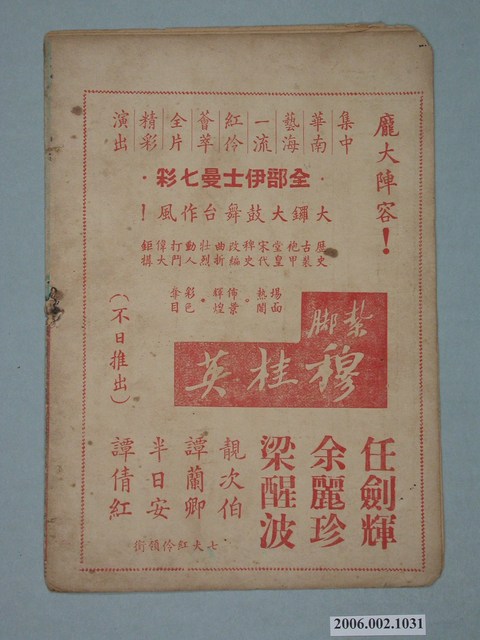 龐大陣容！
集中
華南
藝海
一流
紅伶
薈萃
全片
精彩
演出
·全部伊士曼七彩·
大鑼大鼓舞台作風！
歷史
古裝
袍甲
堂皇
宋代
稗史
改編
曲折
壯烈
動人
打鬥
偉大
鉅構
場面
熱鬧。
佈景
輝煌。
彩色
奪目
紮脚
穆桂英
（不日推出）
任劍輝
余麗珍
梁醒波
靚次伯
譚蘭卿
半日安
譚倩紅
七大紅伶領銜
2006.002.1031